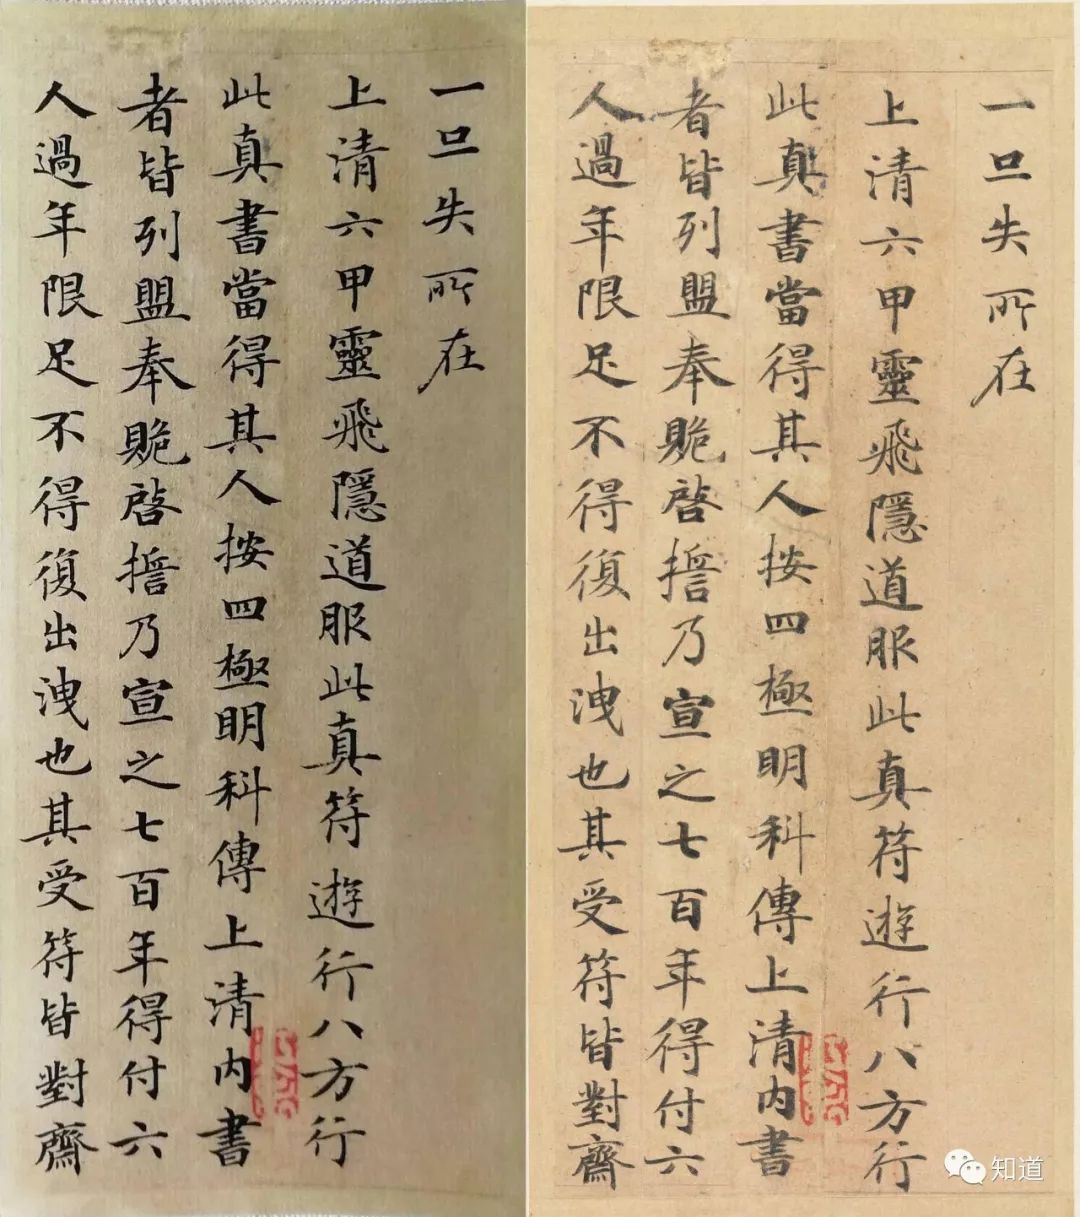 一旦失所在
上清六甲靈飛隱道服此真符遊行八方行
此真書當得其人按四極明科傳上清內書
者皆列盟奉䞈啓誓乃宣之七百年得付六
人過年限足不得復出洩也其受符皆對齋
一旦失所在
上清六甲靈飛隱道服此真符遊行八方行
此真書當得其人按四極明科傳上清內書
者皆列盟奉䞈啓誓乃宣之七百年得付六
人過年限足不得復出洩也其受符皆對齋
知道